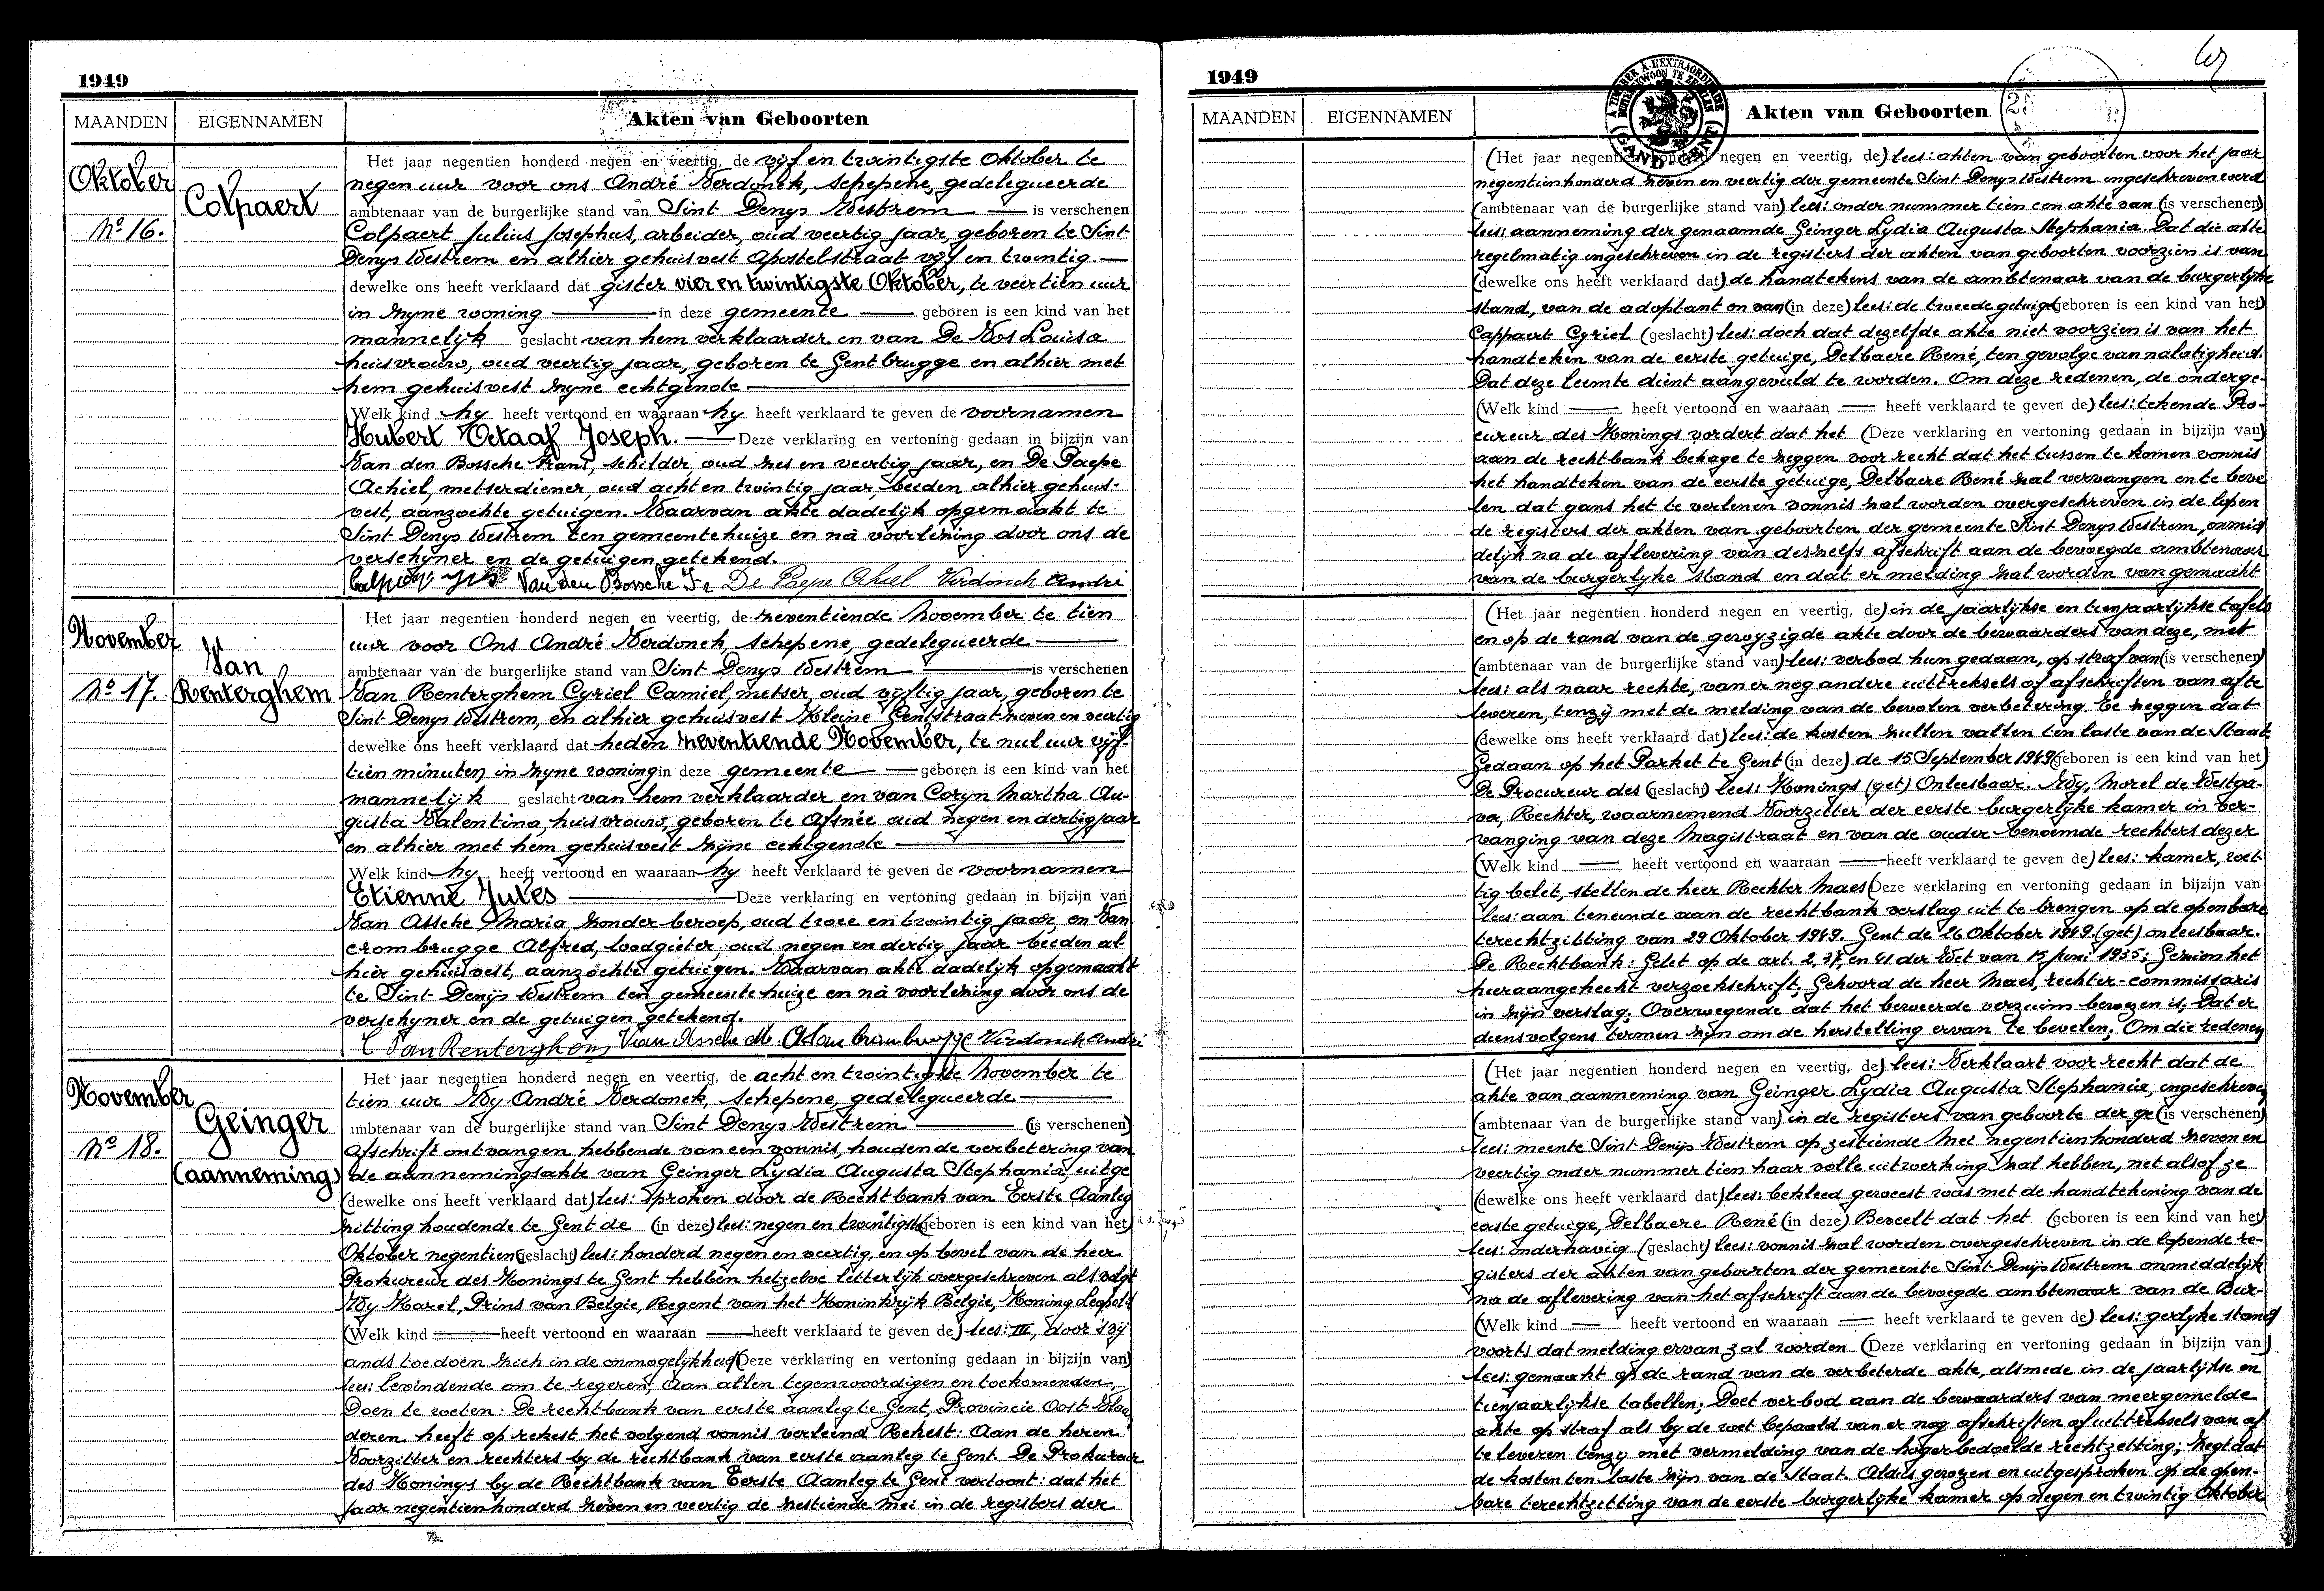 1949
MAANDEN EIGENNAMEN Akten van Geboorten
Oktober
No 16.
Colpaert
Het jaar negentien honderd negen en veertig, de vijf en twintigste Oktober te
negen uur voor ons André Verdonck, schepene, gedelegueerde
ambtenaar van de burgerlijke stand van Sint Denys Westrem is verschenen
Colpaert Julius Josephus, arbeider, oud veertig jaar, geboren te Sint
Denys Westrem en alhier gehuisvest Apostelstraat vijf en twintig
dewelke ons heeft verklaard dat gister vier en twintigste Oktober, te veertien uur
in zyne woning in deze gemeente geboren is een kind van het
mannelijk geslacht van hem verklaarder en van De Vos Louisa
huisvrouw, oud veertig jaar, geboren te Gentbrugge en alhier met
hem gehuisvest zyne echtgenote
Welk kind hy heeft vertoond en waaraan hy heeft verklaard te geven de voornamen
Hubert Octaaf Joseph. Deze verklaring en vertoning gedaan in bijzijn van
Van den Bossche Frans, schilder, oud zes en veertig jaar, en De Paepe
Achiel, metserdiener, oud acht en twintig jaar, beiden alhier gehuis-
vest, aanzochte getuigen. Waarvan akte dadelijk opgemaakt te
Sint Denys Westrem ten gemeentehuize en nà voorlezing door ons de
verschyner en de getuigen getekend.
Van den Bossche Fr De Paepe Achiel Verdonck André
November
No 17.
Van
Renterghem
Het jaar negentien honderd negen en veertig, de zeventiende November te tien
uur voor Ons André Verdonck, schepene, gedelegueerde
ambtenaar van de burgerlijke stand van Sint Denys Westrem is verschenen
Van Renterghem Cyriel Camiel, metser, oud vijftig jaar, geboren te
Sint Denys Westrem, en alhier gehuisvest Kleine Gentstraat zeven en veertig
dewelke ons heeft verklaard dat heden zeventiende November, te nul uur vijf-
tien minuten in zyne woning in deze gemeente geboren is een kind van het
mannelijk geslacht van hem verklaarder en van Coryn Martha Au-
gusta Valentina, huisvrouw, geboren te Afsnée oud negen en dertig jaar
en alhier met hem gehuisvest zijne echtgenote
Welk kind hy heeft vertoond en waaraan hy heeft verklaard te geven de voornamen
Etienne Jules Deze verklaring en vertoning gedaan in bijzijn van
Van Assche Maria, zonder beroep, oud twee en twintig jaar, en Van
crombrugge Alfred, loodgieter, oud negen en dertig jaar beiden al
hier gehuisvest, aanzochte getuigen. Waarvan akte dadelijk opgemaakt
te Sint Denijs Westrem ten gemeentehuize en nà voorlezing door ons de
verschyner en de getuigen getekend.
C Van Renterghem Van Assche M. Verdonck André
November
No 18.
Geinger
(aanneming)
Het jaar negentien honderd negen en veertig, de acht en twintigste November te
tien uur Wy André Verdonck, Schepene, gedelegueerde
ambtenaar van de burgerlijke stand van Sint Denys Westrem (is verschenen)
Afschrift ontvangen hebbende van een vonnis, houdende verbetering van
de aannemingsakte van Geinger Lydia Augusta Stephania, uitge
(dewelke ons heeft verklaard dat) lees: sproken door de Rechtbank van Eerste Aanleg
zitting houdende te Gent de (in deze) lees: negen en twintigste (geboren is een kind van het)
Oktober negentien (geslacht) lees: honderd negen en veertig, en op bevel van de heer
Prokureur des Konings te Gent hebben hetzelve letterlijk overgeschreven als volgt
Wy Karel, Prins van Belgie, Regent van het Koninkrijk Belgie, Koning Leopold
(Welk kind heeft vertoond en waaraan heeft verklaard te geven de) lees: III, door 's vij
ands toedoen zich in de onmogelijkheid (Deze verklaring en vertoning gedaan in bijzijn van)
lees: bevindende om te regeren, Aan allen tegenwoordigen en toekomenden,
Doen te weten: De rechtbank van eerste aanleg te Gent, Provincie Oost-Vlaan
deren heeft op rekest het volgend vonnis verleend Rekest: Aan de heren
Voorzitter en rechters by de rechtbank van eerste aanleg te Gent. De Prokureur
des Konings by de Rechtbank van Eerste Aanleg te Gent vertoont: dat het
jaar negentienhonderd zeven en veertig de zestiende Mei in de registers der
1949
MAANDEN EIGENNAMEN Akten van Geboorten
(Het jaar negentien honderd negen en veertig, de) lees: akten van geboorten voor het jaar
negentienhonderd zeven en veertig der gemeente Sint Denys Westrem ingeschreven werd
(ambtenaar van de burgerlijke stand van) lees: onder nummer tien een akte van (is verschenen)
lees: aanneming der genaamde Geinger Lydia Augusta Stephania. Dat die akte
regelmatig ingeschreven in de registers der akten van geboorten voorzien is van
(dewelke ons heeft verklaard dat) de handtekens van de ambtenaar van de burgerlijke
stand, van de adoptant en van (in deze) lees: de tweede getuige (geboren is een kind van het)
Cappaert Cyriel (geslacht) lees: doch dat dezelfde akte niet voorzien is van het
handteken van de eerste getuige, Delbaere René, ten gevolge van nalatigheid.
Dat deze leemte dient aangevuld te worden. Om deze redenen, de onderge-
(Welk kind heeft vertoond en waaraan heeft verklaard te geven de) lees: tekende Pro-
cureur des Konings vordert dat het (Deze verklaring en vertoning gedaan in bijzijn van)
aan de rechtbank behage te zeggen voor recht dat het tussen te komen vonnis
het handteken van de eerste getuige, Delbaere René zal vervangen en te beve
len dat gans het te verlenen vonnis zal worden overgeschreven in de lopen
de registers der akten van geboorten der gemeente Sint Denys Westrem, onmid
delijk na de aflevering van deszelfs afschrift aan de bevoegde ambtenaar
van de burgerlyke stand en dat er melding zal worden van gemaakt
(Het jaar negentien honderd negen en veertig, de) in de jaarlijkse en tienjaarlijkse tafels
en op de rand van de gewyzigde akte door de bewaarders van deze, met
(ambtenaar van de burgerlijke stand van) lees: verbod hun gedaan, op straf van (is verschenen)
lees: als naar rechte, van er nog andere uittreksels of afschriften van af te
leveren, tenzij met de melding van de bevolen verbetering. Te zeggen dat
(dewelke ons heeft verklaard dat) lees: de kosten zullen vallen ten laste van de Staat
Gedaan op het Parket te Gent (in deze) de 15 September 1949 (geboren is een kind van het)
De Procureur des (geslacht) lees: Konings (get) Onleesbaar. Wy, Morel de Westga-
ver, Rechter, waarnemend Voorzitter der eerste burgerlyke kamer in ver-
vanging van deze Magistraat en van de ouder benoemde rechters dezer
(Welk kind heeft vertoond en waaraan heeft verklaard te geven de) lees: kamer, wet-
tig belet, stellen de heer Rechter Maes (Deze verklaring en vertoning gedaan in bijzijn van
lees: aan teneinde aan de rechtbank verslag uit te brengen op de openbare
terechtzitting van 29 Oktober 1949. Gent de 26 Oktober 1949. (get) onleesbaar.
De Rechtbank: Gelet op de art. 2, 37, en 41 der Wet van 15 juni 1935; Gezien het
hieraangehecht verzoekschrift; Gehoord de heer Maes, rechter-commissaris
in zijn verslag; Overwegende dat het beweerde verzuim bewezen is, Dat er
diensvolgens termen zijn om de herstelling ervan te bevelen; Om die redenen
(Het jaar negentien honderd negen en veertig, de) lees: Verklaart voor recht dat de
akte van aanneming van Geinger Lydia Augusta Stephania, ingeschreven
(ambtenaar van de burgerlijke stand van) in de registers van geboorte der ge (is verschenen)
lees: meente Sint Denijs Westrem op zestiende Mei negentienhonderd zeven en
veertig onder nummer tien haar volle uitwerking zal hebben, net alsof ze
(dewelke ons heeft verklaard dat) lees: bekleed geweest was met de handtekening van de
eerste getuige, Delbaere René (in deze) Beveelt dat het (geboren is een kind van het)
lees: onderhavig (geslacht) lees: vonnis zal worden overgeschreven in de lopende re-
gisters der akten van geboorten der gemeente Sint Denijs Westrem onmiddelijk
na de aflevering van het afschrift aan de bevoegde ambtenaar van de Bur-
(Welk kind heeft vertoond en waaraan heeft verklaard te geven de) lees: gerlyke stand
voorts dat melding ervan zal worden (Deze verklaring en vertoning gedaan in bijzijn van)
lees: gemaakt op de rand van de verbeterde akte, alsmede in de jaarlijkse en
tienjaarlijkse tabellen; Doet verbod aan de bewaarders van meergemelde
akte op straf als by de wet bepaald van er nog afschriften of uittreksels van af
te leveren tenzy met vermelding van de hogerbedoelde rechtzetting; Zegt dat
de kosten ten laste zijn van de Staat. Aldus gewezen en uitgesproken op de open-
bare terechtzetting van de eerste burgerlyke kamer op negen en twintig Oktober